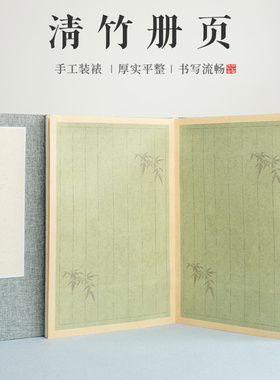 清竹册页
手工装裱 | 厚实平整 | 书写流畅